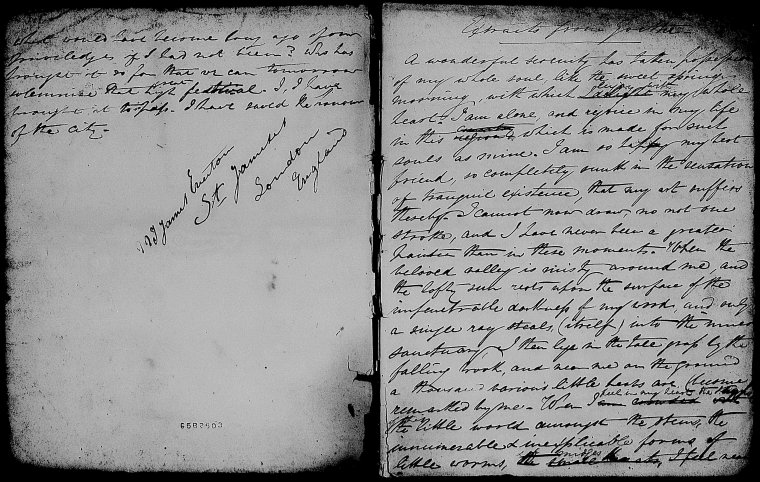 What would have become long ago of our
priviledges if I had not been? Who has
brought it so far that we can tomorrow
solemnise that high festival. I, I have
brought it to pass. I have saved the honour
of the city.
James Everton
St James's
London
England
6582603
Extracts from
A wonderful serenity has taken possession
of my whole soul, like the sweet spring
morning, with which my whole
heart. I am alone, and rejoice in my life
in this which is made for such
souls as mine. I am so happy my best
friend, so completely sunk in the sensation
of tranquil existence, that my art suffers
thereby. I cannot now draw, no not one
stroke, and I have never been a greater
painter than in these moments. When the
beloved valley is misty around me, and
the lofty sun rests upon the surface of the
impenetrable darkness of my wood, and only
a single ray steals (itself) into the inner
sanctuary, I then lye in the tall grass by the
falling brook, and near me on the ground
a thousand various little herbs are become
remarked by me. When I feel in my heart the
the little world amongst the stems, the
innumerable & inexplicable forms of
little worms, the small I feel near